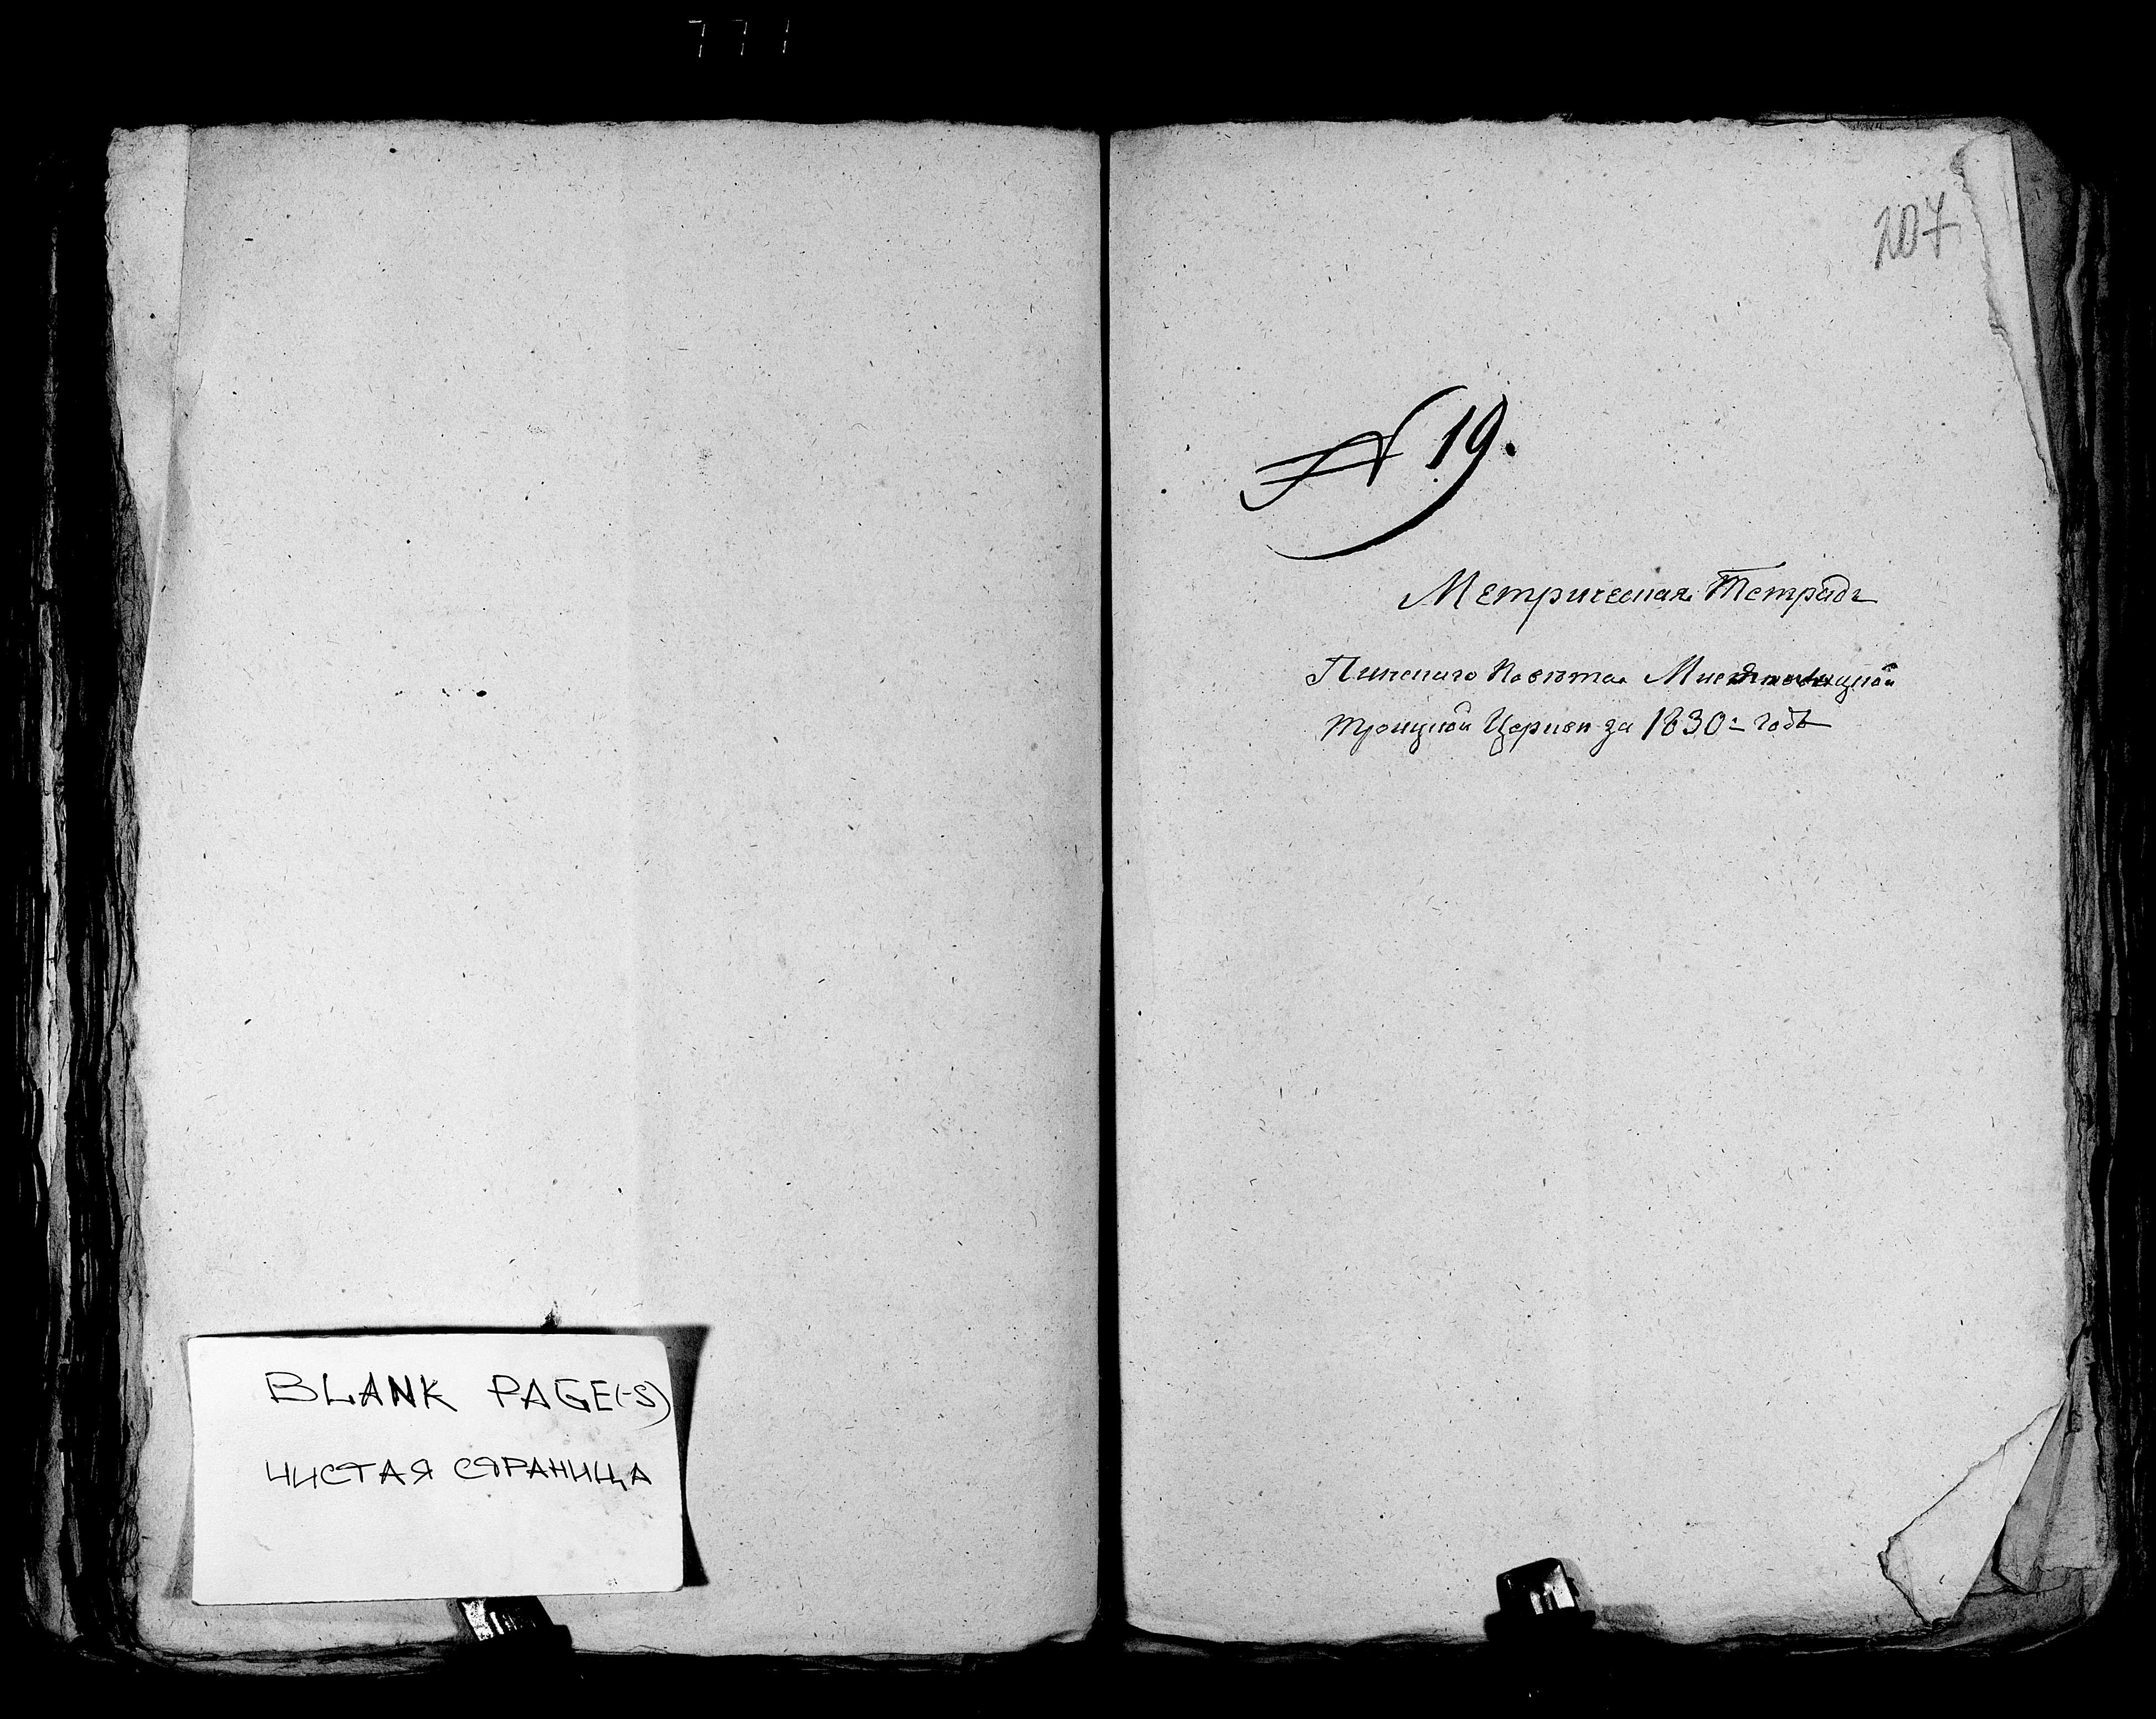 771
BLANK PAGE(-S)
ЧИСТАЯ СТРАНИЦА
207
№ 19.
Метрическая Тетрадь
Пинскаго Повѣта
Троицкой Церкви за 1830: годъ